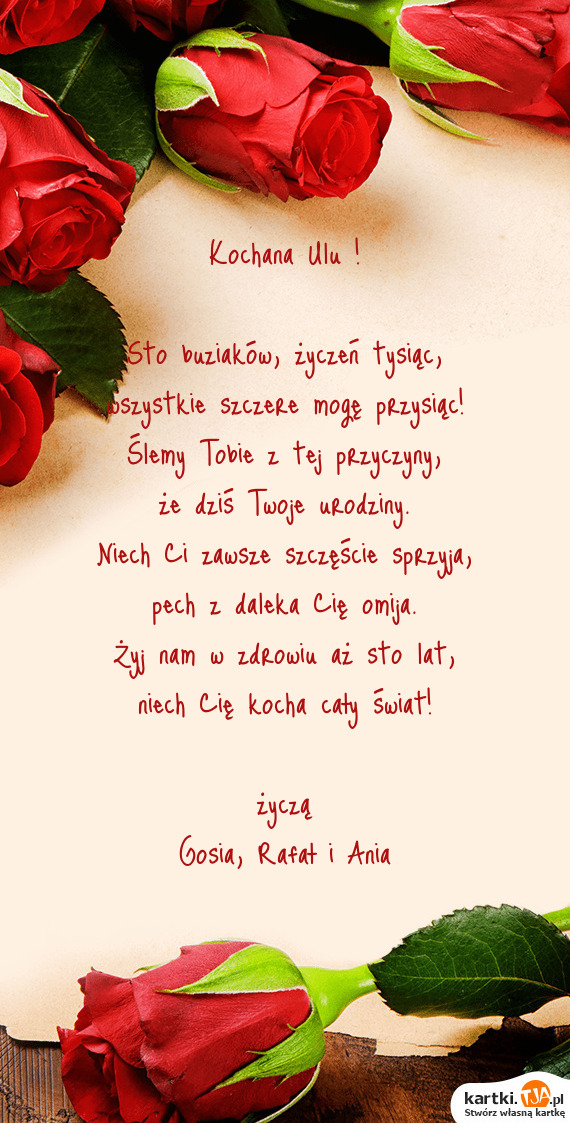 Kochana Ulu !
Sto buziaków, życzeń tysiąc,
wszystkie szczere mogę przysiąc!
Ślemy Tobie z tej przyczyny,
że dziś Twoje urodziny.
Niech Ci zawsze szczęście sprzyja,
pech z daleka Cię omija.
Żyj nam w zdrowiu aż sto lat,
niech Cię kocha cały świat!
życzą
Gosia, Rafał i Ania
kartki.TJA.pl
Stwórz własną kartkę